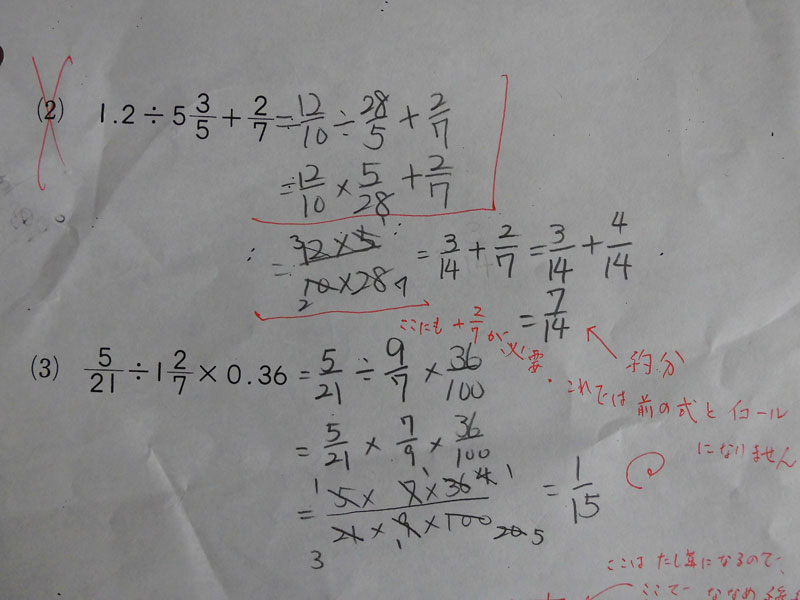 (2) 1.2÷5 3/5+2/7=12/10÷28/5+2/7
=12/10×5/28+2/7
=12×5/10×28=3/14+2/7=3/14+4/14
3 1 2 7
=7/14
ここにも+2/7が必要.
約分
これでは前の式とイコール
になりません
(3) 5/21÷1 2/7×0.36=5/21÷9/7×36/100
=5/21×7/9×36/100
=5×7×36/21×9×100=1/15
1 1 4 1
3 1 20 5
ここはたし算になるので、
ここで ななめ